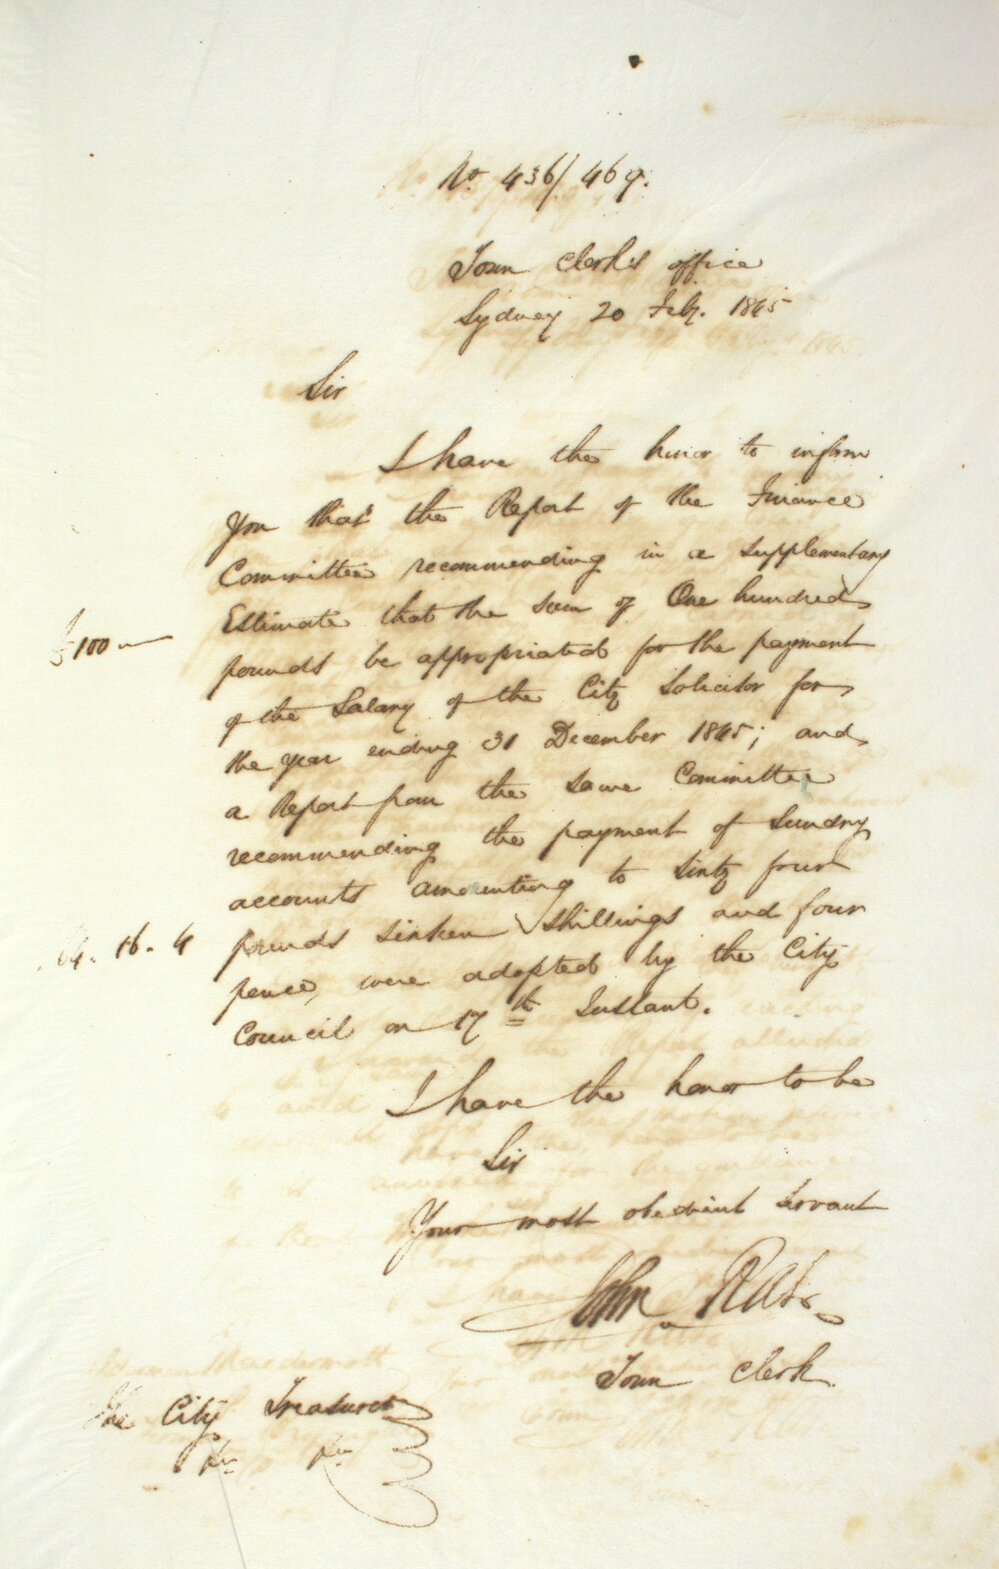 No. 436/467.
Town Clerk's office
Sydney 20 Feby. 1845
Sir
I have the honor to inform
you that the Report of the Finance
Committee recommending in a supplementary
Estimate that the sum of One hundred
£100 -
pounds be appropriated for the payment
of the Salary of the City Solicitor for
the year ending 31 December 1845; and
a Report from the same Committee
recommending the payment of Sundry
accounts amounting to Sixty four
64. 16. 4
pounds sixteen shillings and four
pence, were adopted by the City
Council on 17th Instant.
I have the honor to be
Sir
Your most obedient Servant
John Rae
Town Clerk
The City Treasurer